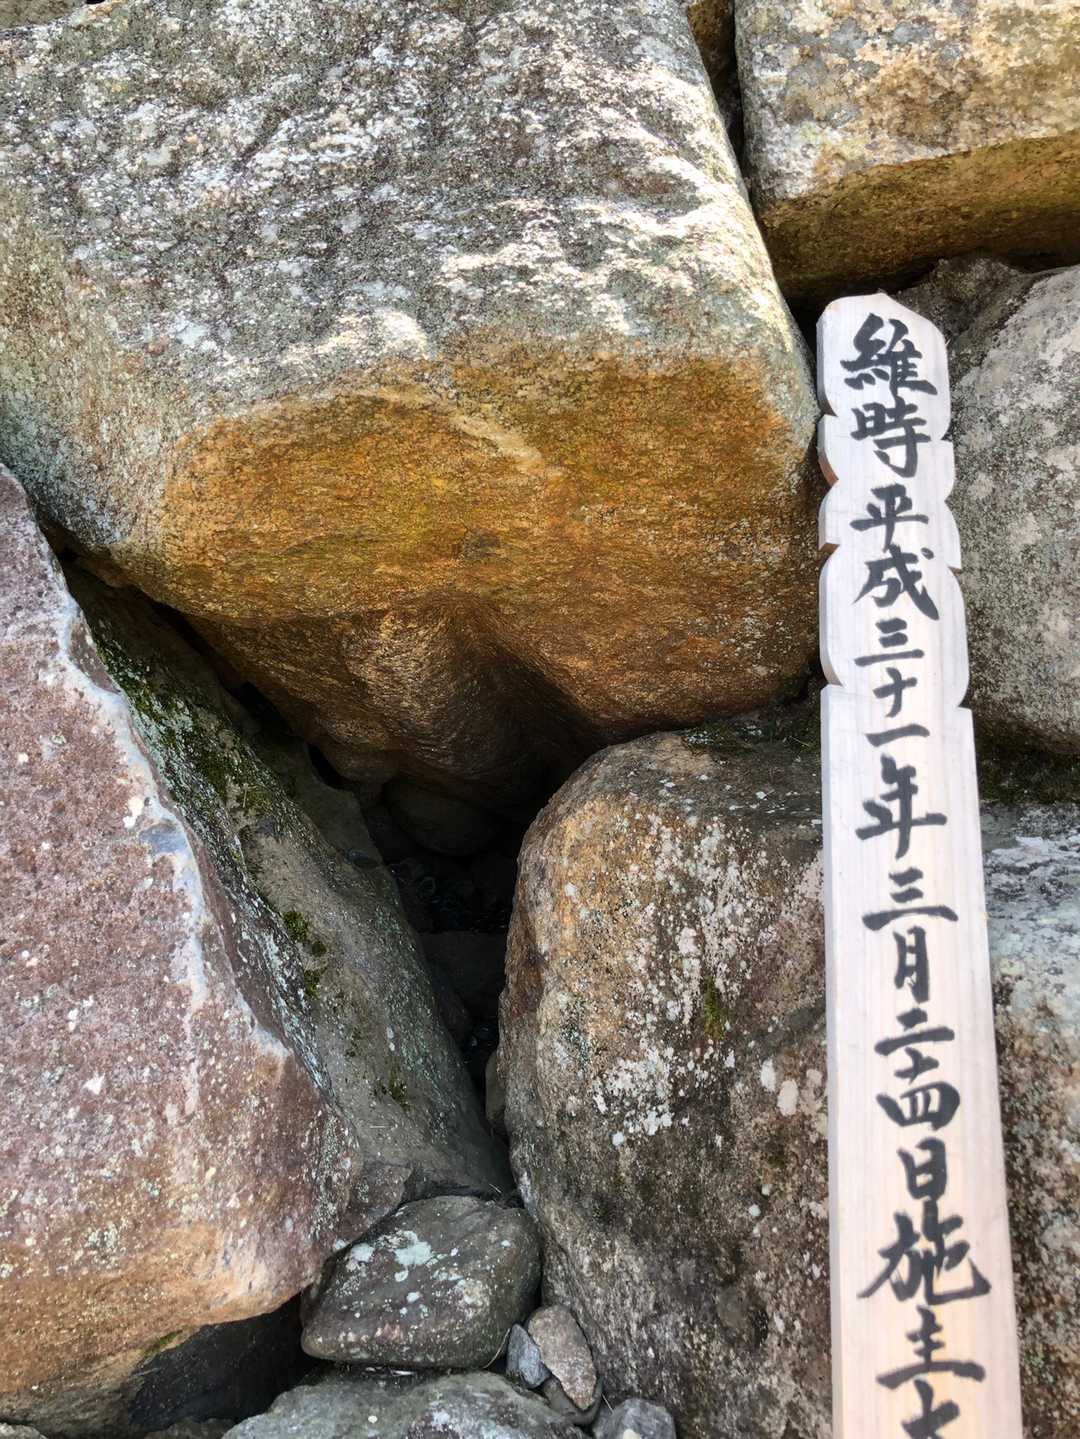 維時平成三十一年三月二十四日施主大